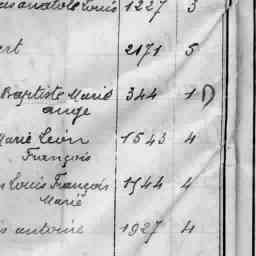 Anatole Louis 1227 3
ert 2171 5
Baptiste Marie 344 1
ange
Marie Léon 1543 4
François
s Louis François 1544 4
Marie
is antoine 1927 4